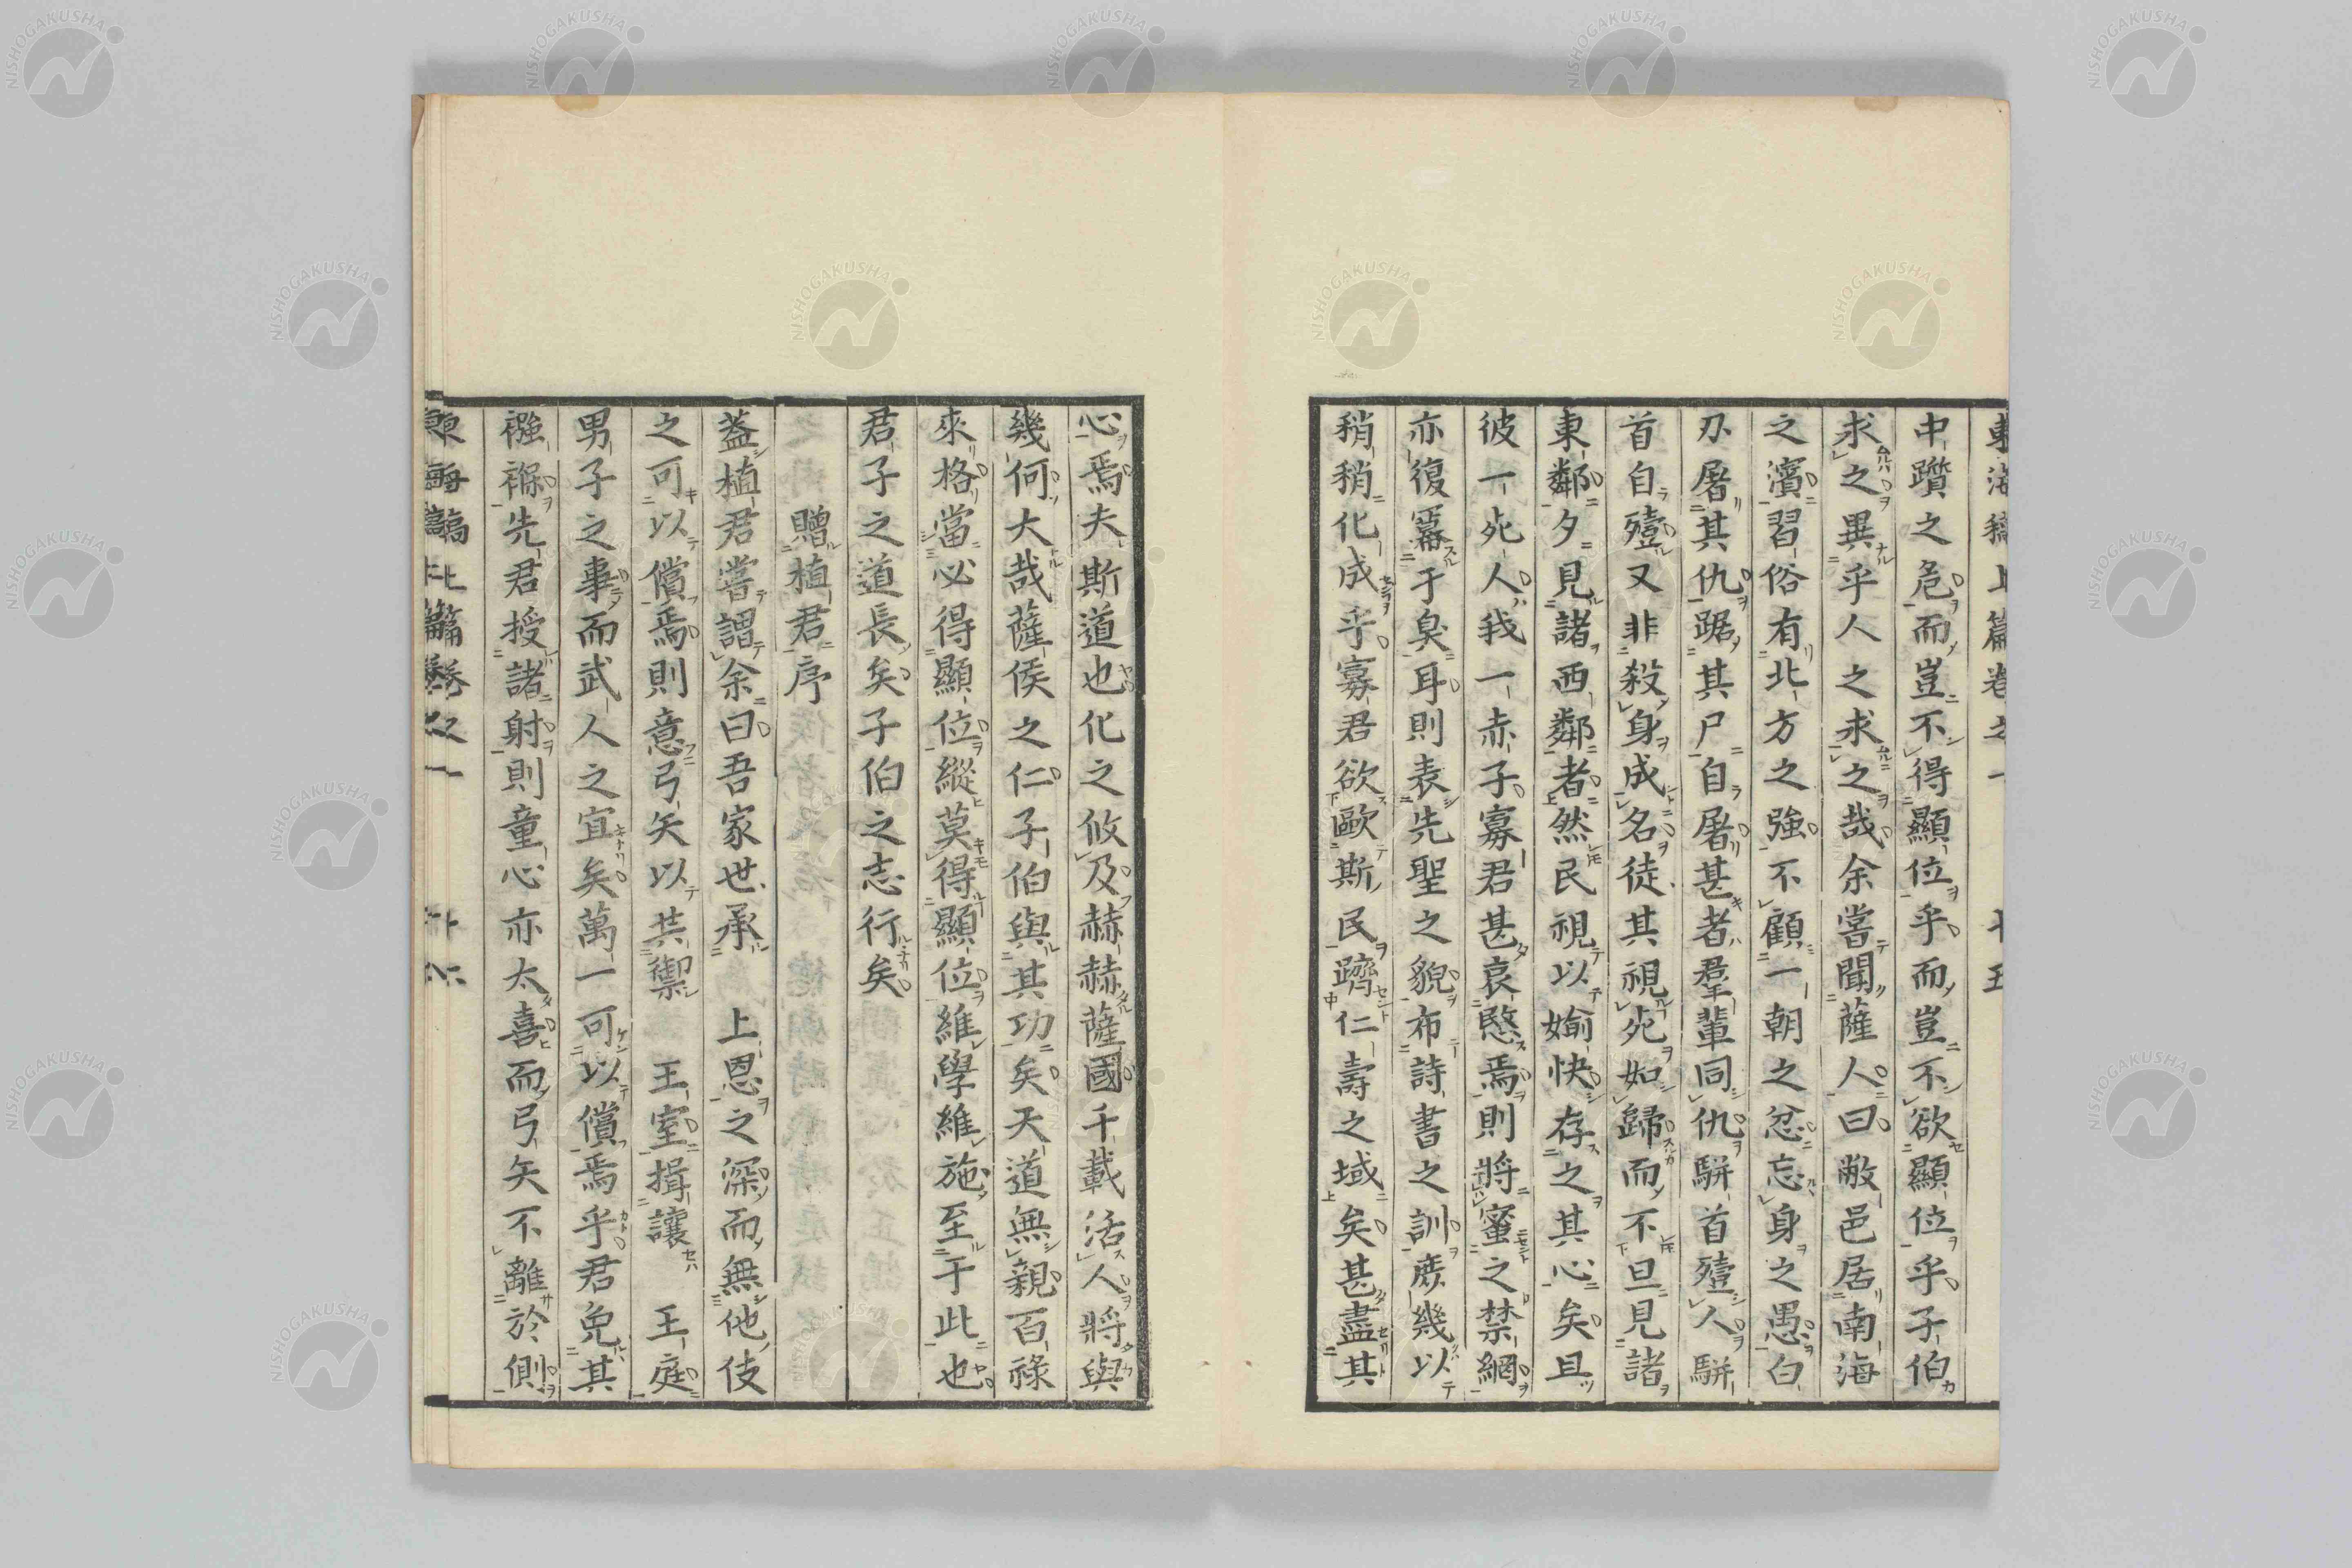 東海稿上篇卷之一 十五
中躓之危而豈不得顯位乎而豈不欲顯位乎子伯
求之異乎人之求之哉余嘗聞薩人曰敝邑居南海
之濱習俗有北方之強不顧一朝之忿忘身之愚白
刃屠其仇踞其尸自屠甚者羣輩同仇駢首殪人駢
首自殪又非殺身成名徒其視死如歸而不旦見諸
東鄰夕見諸西鄰者然民視以媮快存之其心矣且
彼一死人我一赤子寡君甚哀愍焉則將蜜之禁網
亦復羃于臭耳則表先聖之貌布詩書之訓庶幾以
稍稍化成乎寡君欲歐斯民躋仁壽之域矣甚盡其
心焉夫斯道也化之攸及赫赫薩國千載活人將與
幾何大哉薩侯之仁子伯與其功矣天道無親百祿
來格當必得顯位縱莫得顯位維學維施至于此也
君子之道長矣子伯之志行矣
贈植君序
葢植君嘗謂余曰吾家世承 上恩之深而無他伎
之可以償焉則意弓矢以共禦 王室揖讓 王庭
男子之事而武人之宜矣萬一可以償焉乎君免其
襁褓先君授諸射則童心亦太喜而弓矢不離於側
東海稿上篇卷之一 十六